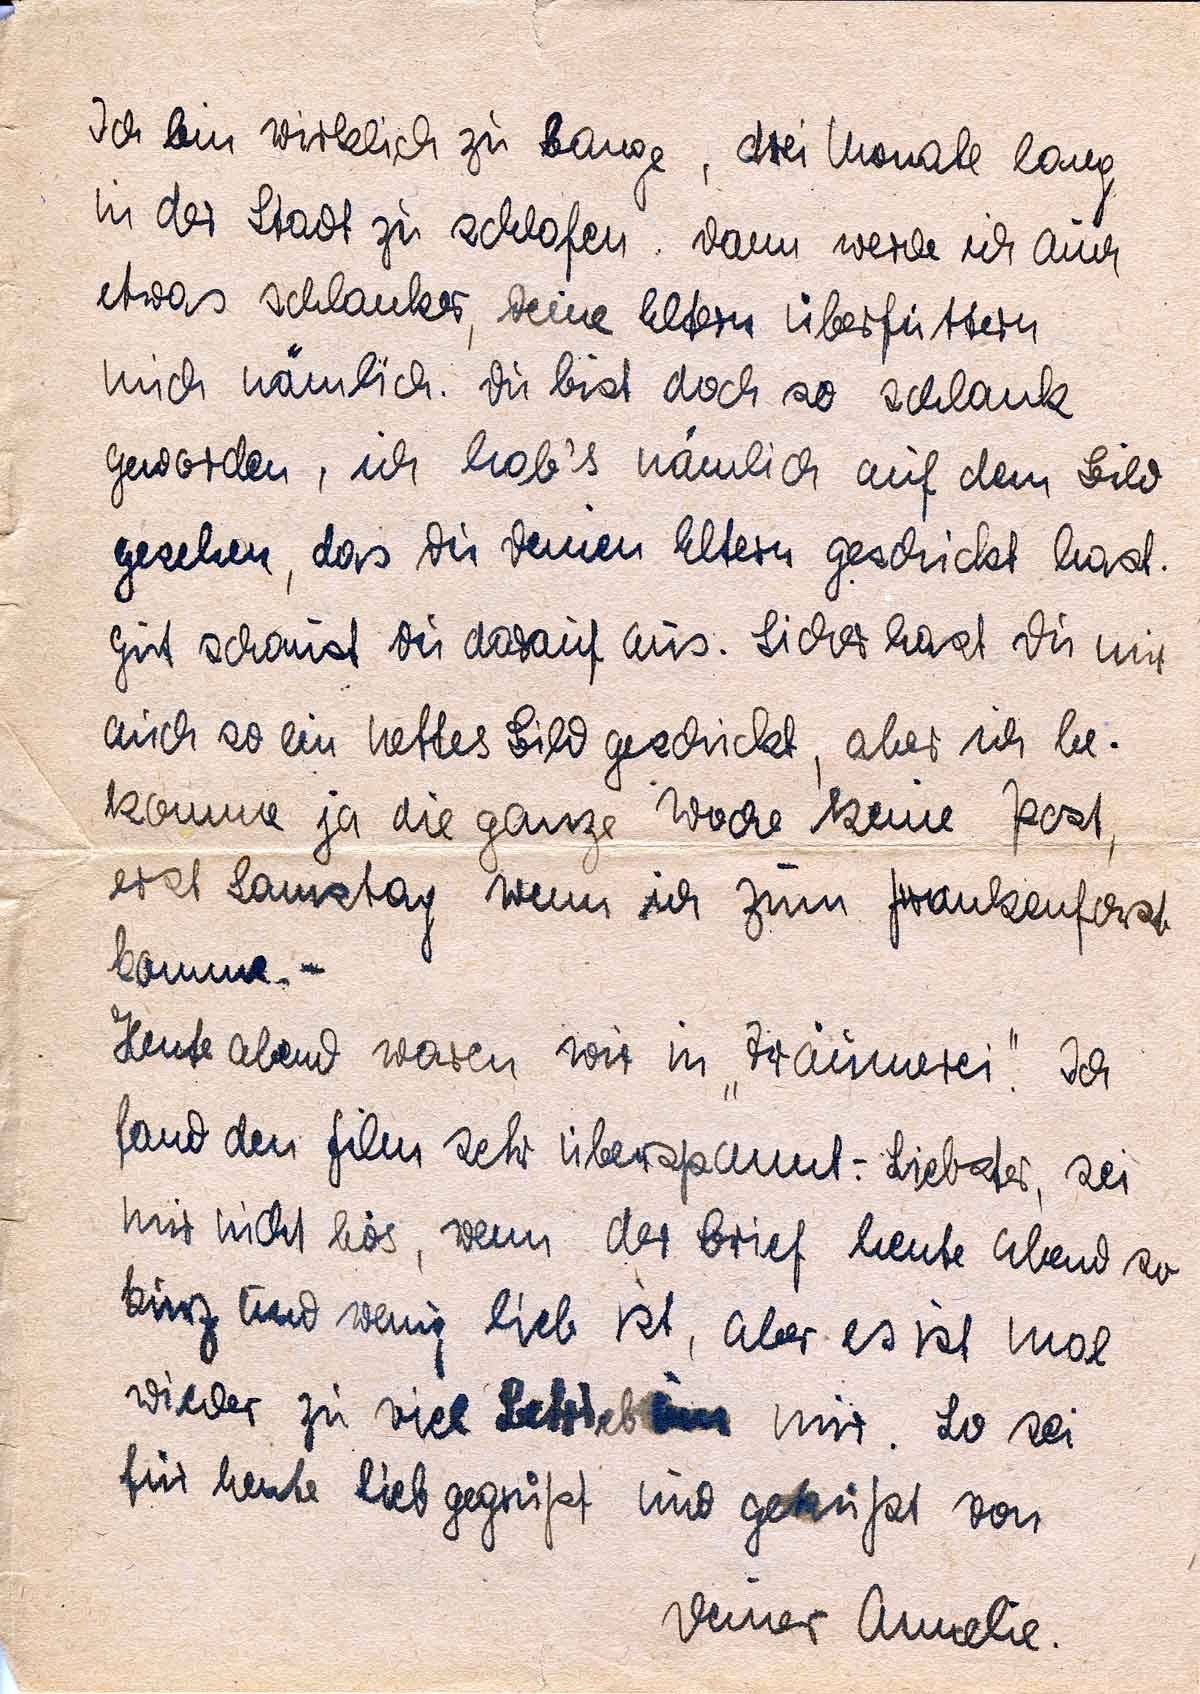 Ich bin wirklich zu bange, drei Monate lang
in der Stadt zu schlafen. Dann werde ich auch
etwas schlanker, Deine Eltern überfüttern
mich nämlich. Du bist doch so schlank
geworden, ich hab's nämlich auf dem Bild
gesehen, das Du Deinen Eltern geschickt hast.
Gut schaust Du darauf aus. Sicher hast Du mir
auch so ein nettes Bild geschickt, aber ich be-
komme ja die ganze Woche keine Post,
erst Samstag wenn ich zum Frankenforst
komme.-
Heute abend waren wir in „Träumerei". Ich
fand den Film sehr überspannt.- Liebster, sei
mir nicht bös, wenn der Brief heute Abend so
kurz und wenig lieb ist, aber es ist mal
wieder zu viel Betrieb um mir. So sei
für heute lieb gegrüßt und geküßt von
Deiner Annelie.